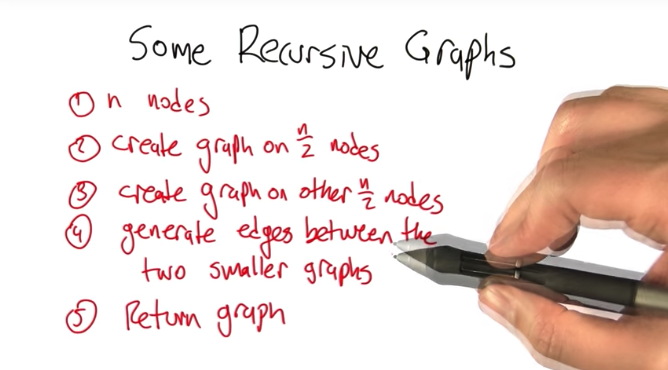 Some Recursive Graphs
① n nodes
② create graph on n/2 nodes
③ create graph on other n/2 nodes
④ generate edges between the
two smaller graphs
⑤ Return graph